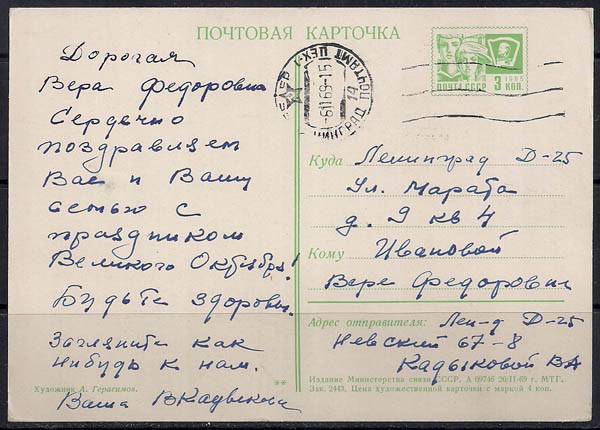 ПОЧТОВАЯ КАРТОЧКА
Дорогая
Вера Федоровна
Сердечно
поздравляем
Вас и Вашу
семью с
праздником
Великого Октября!
Будьте здоровы.
Загляните как
нибудь к нам.
Ваша ВКадыкова
Художник А. Герасимов.
**
ПОЧТАМТ ЦЕХ-1
-61169-15
1966
ПОЧТА СССР 3 КОП.
Куда Ленинград Д-25
Ул. Марата
д. 9 кв 4
Кому Ивановой
Вере Федоровне
Адрес отправителя: Лен-д Д-25
Невский 67-8
Кадыковой ВА
Издание Министерства связи СССР. А 09746 20/II-69 г. МТГ.
Зак. 2443. Цена художественной карточки с маркой 4 коп.